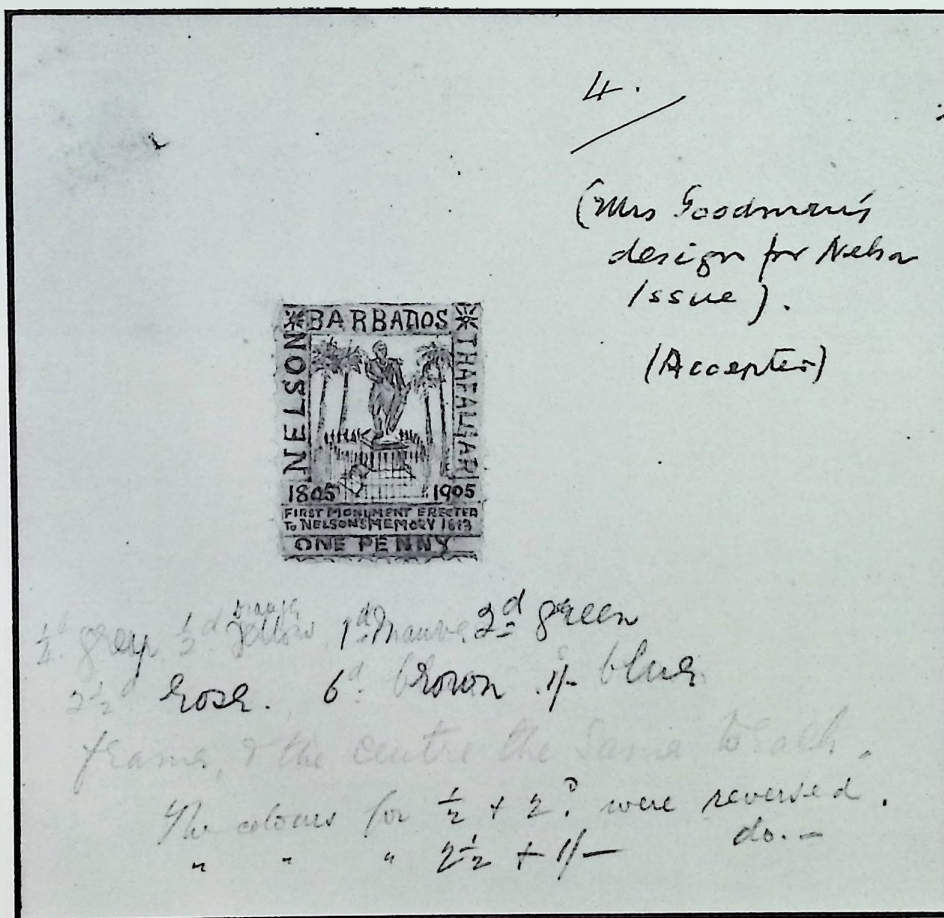 4.
(Mrs Goodman's
design for Nelson
Issue).
(Accepted)
BARBADOS
NELSON
TRAFALGAR
1805 1905
FIRST MONUMENT ERECTED
TO NELSON'S MEMORY 1813
ONE PENNY
orange
¼d grey ½d yellow, 1d mauve 2d green
2½d rose. 6d. brown 1/- blue
frame, & the centre the same to each.
The colours for ½ + 2d were reversed.
" " " 2½ + 1/- do. -